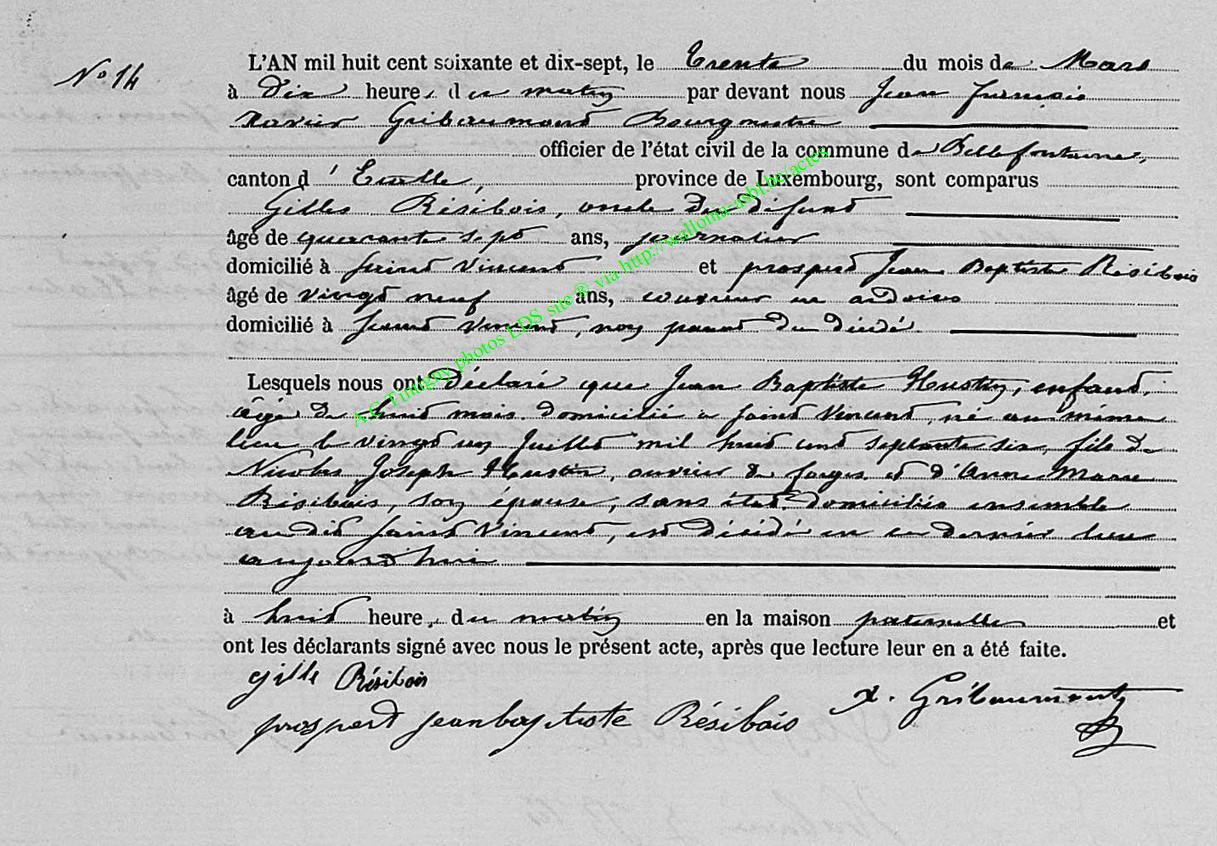 N° 14
L'AN mil huit cent soixante et dix-sept, le Trente du mois de Mars
à Dix heures du matin par devant nous Jean François
Xavier Gribaumont Bourgmestre
officier de l'état civil de la commune de Bellefontaine,
canton d'Etalle, province de Luxembourg, sont comparus
Gilles Résibois, oncle du défunt
âgé de quarante sept ans, journalier
domicilié à Saint Vincent et prosperd Jean Baptiste Résibois
âgé de vingt neuf ans, couvreur en ardoises
domicilié à Saint Vincent, non parent du décédé
Lesquels nous ont Déclaré que Jean Baptiste Hustin, enfant,
âgé de huit mois domicilié à Saint Vincent, né au même
lieu le vingt un Juillet mil huit cent septante six, fils de
Nicolas Joseph Hustin, ouvrier de forges et d'Anne Marie
Résibois, son épouse, sans état domiciliés ensemble
au dit Saint Vincent, est décédé en ce dernier lieu
aujourd'hui
à huit heures du matin en la maison paternelle et
ont les déclarants signé avec nous le présent acte, après que lecture leur en a été faite.
gille Résibois
X. Gribaumont
prosperd jeanbaptiste Résibois
photos LDS site® via http://wallonia-asbl.be/actes